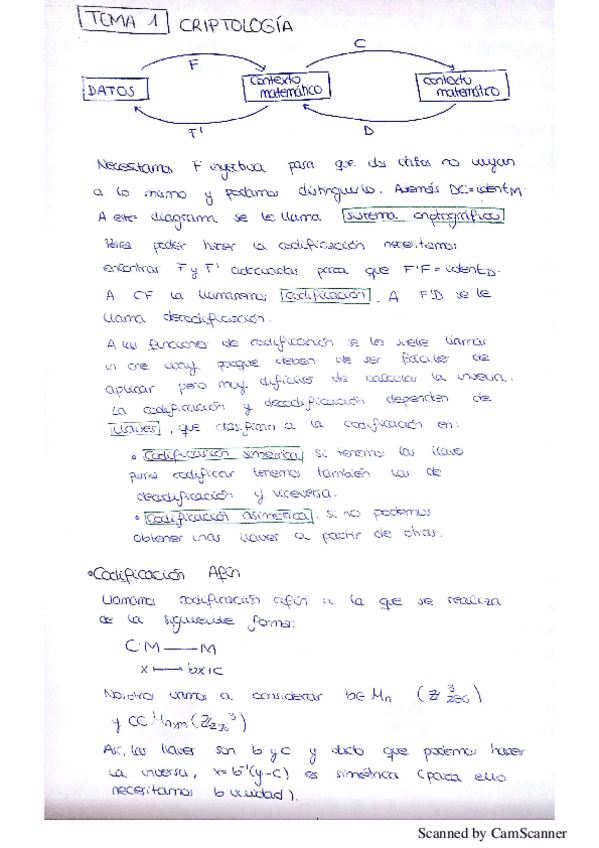 TEMA 1 CRIPTOLOGÍA
C
F
DATOS
contexto
matemático
contexto
matemático
F'
D
Necesitamos F inyectiva para que dos datos no vayan
a lo mismo y podamos distinguirlo. Además DC=ident_M.
A este diagrama se le llama sistema criptográfico
Para poder hacer la codificación necesitamos
encontrar F y F' adecuadas para que F'F=ident_D.
A CF la llamaremos codificación. A F'D se le
llama decodificación.
A las funciones de codificación se les suele llamar
one way, porque deben de ser fáciles de
aplicar pero muy difíciles de calcular la inversa.
La codificación y decodificación dependen de
llaves, que clasifican a la codificación en:
• Codificación simétrica, si tenemos las llave
para codificar tenemos también las de
decodificación y viceversa.
• Codificación asimétrica, si no podemos
obtener unas llaves a partir de otras.
• Codificación Afín
Llamamos codificación afín a la que se realiza
de la siguiente forma:
C:M — M
x ⟼ bx+c
Nosotros vamos a considerar b∈M_n (ℤ_256^3)
y c∈M_nxm (ℤ_256^3)
Así, las llaves son b y c y dado que podemos hacer
la inversa, x=b⁻¹(y-c) es simétrica (para ello
necesitamos b unidad).
Scanned by CamScanner